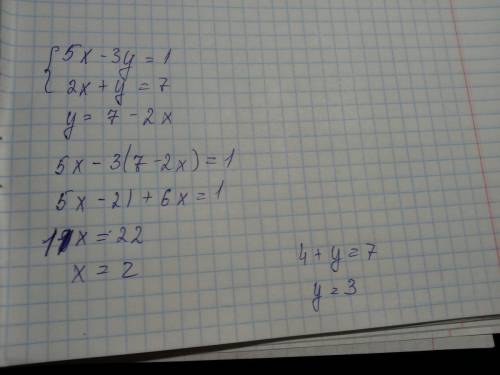 5x - 3y = 1
2x + y = 7
y = 7 - 2x
5x - 3(7 - 2x) = 1
5x - 21 + 6x = 1
11x = 22
x = 2
4 + y = 7
y = 3